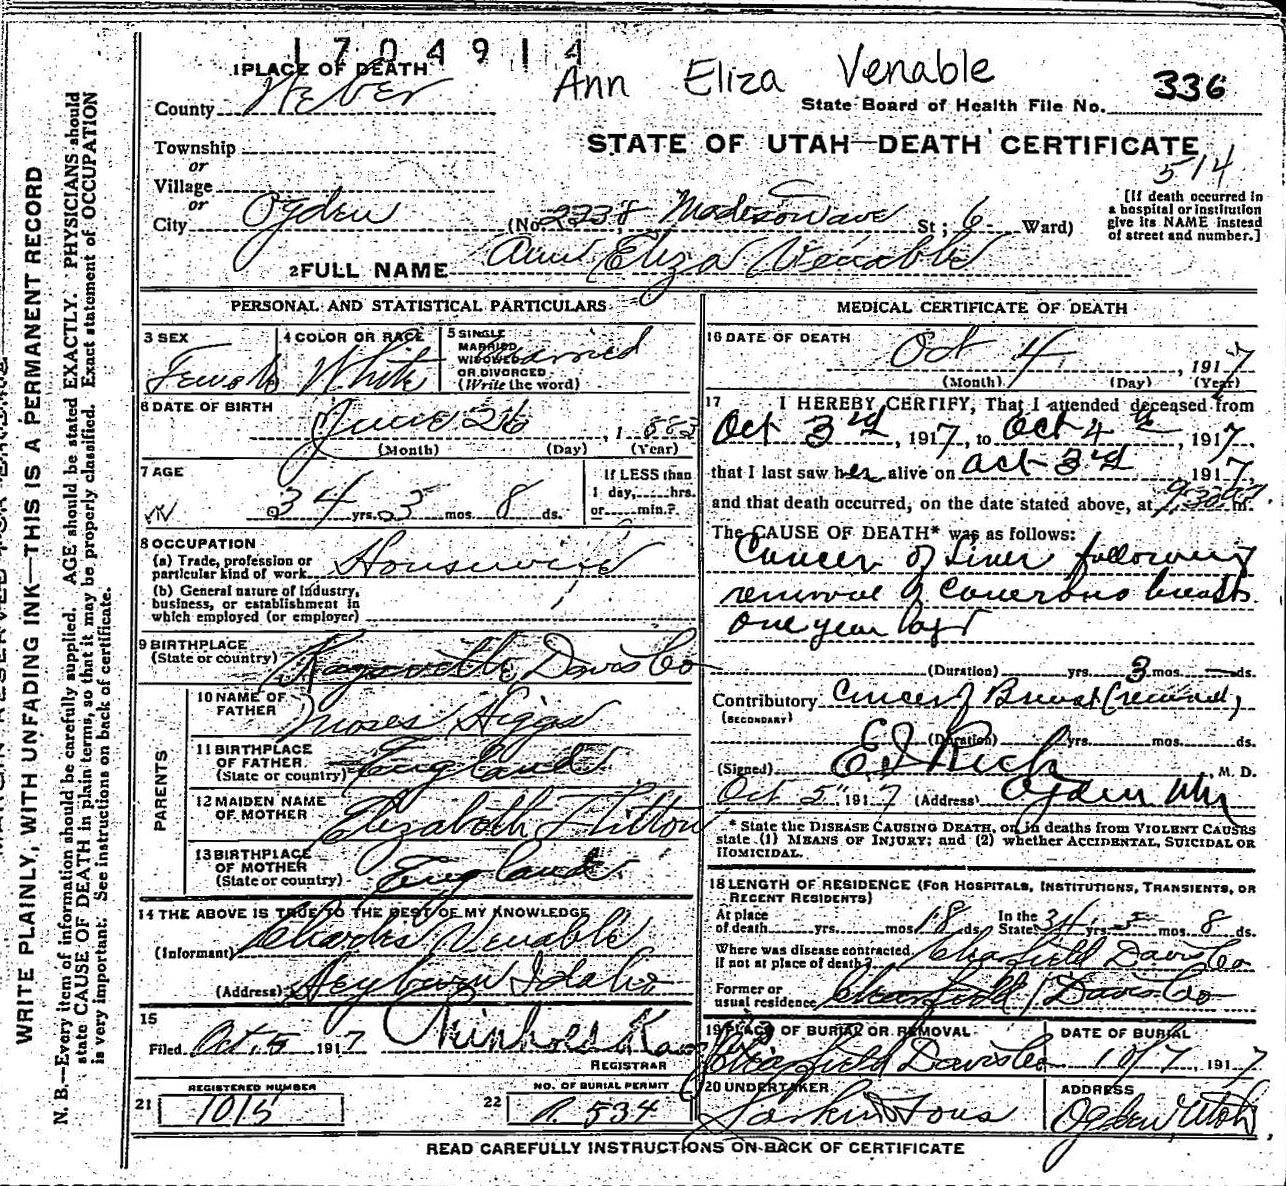 1704914
Ann Eliza Venable
1 PLACE OF DEATH
County Weber
State Board of Health File No. 336
Township
or
Village
or
City Ogden
STATE OF UTAH—DEATH CERTIFICATE
514
[If death occurred in
a hospital or institution
give its NAME instead
of street and number.]
(No. 2338 Madison ave St; 6 Ward)
2 FULL NAME Ann Eliza Venable
PERSONAL AND STATISTICAL PARTICULARS
3 SEX
Female
4 COLOR OR RACE
White
5 SINGLE
MARRIED
WIDOWED
OR DIVORCED
(Write the word)
Married
6 DATE OF BIRTH
June 26, 1883
(Month) (Day) (Year)
7 AGE
34 yrs. 3 mos. 8 ds.
If LESS than
1 day,......hrs.
or......min.?
8 OCCUPATION
(a) Trade, profession or
particular kind of work Housewife
(b) General nature of Industry,
business, or establishment in
which employed (or employer)
9 BIRTHPLACE
(State or country) Kaysville Davis Co
PARENTS
10 NAME OF
FATHER Moses Higgs
11 BIRTHPLACE
OF FATHER
(State or country) England
12 MAIDEN NAME
OF MOTHER Elizabeth Hilton
13 BIRTHPLACE
OF MOTHER
(State or country) England
14 THE ABOVE IS TRUE TO THE BEST OF MY KNOWLEDGE
(Informant) Charles Venable
(Address) Heyburn Idaho
15
Filed Oct. 5 1917
REGISTRAR
REGISTERED NUMBER
21 1015
NO. OF BURIAL PERMIT
22 534
MEDICAL CERTIFICATE OF DEATH
16 DATE OF DEATH
Oct 4, 1917
(Month) (Day) (Year)
17 I HEREBY CERTIFY, That I attended deceased from
Oct 3rd, 1917, to Oct 4th, 1917,
that I last saw her alive on Oct 3rd 1917,
and that death occurred, on the date stated above, at 9:30 m.
The CAUSE OF DEATH* was as follows:
Cancer of Liver following
removal of Cancerous breast
one year ago
(Duration) yrs. 3 mos. ds.
Contributory Cancer of Breast (removed)
(SECONDARY)
(Duration) yrs. mos. ds.
(Signed) E I Rich, M. D.
Oct 5" 1917 (Address) Ogden Utah
* State the DISEASE CAUSING DEATH, or, in deaths from VIOLENT CAUSES
state (1) MEANS OF INJURY; and (2) whether ACCIDENTAL, SUICIDAL OR
HOMICIDAL.
18 LENGTH OF RESIDENCE (FOR HOSPITALS, INSTITUTIONS, TRANSIENTS, OR
RECENT RESIDENTS)
At place
of death yrs. mos. 18 ds.
In the
State 34 yrs. 3 mos. 8 ds.
Where was disease contracted,
if not at place of death? Clearfield Davis Co
Former or
usual residence Clearfield Davis Co
19 PLACE OF BURIAL OR REMOVAL
Clearfield Davis Co
DATE OF BURIAL
10/7, 1917
20 UNDERTAKER
Larkin & Sons
ADDRESS
Ogden, Utah
READ CAREFULLY INSTRUCTIONS ON BACK OF CERTIFICATE
WRITE PLAINLY, WITH UNFADING INK—THIS IS A PERMANENT RECORD
N. B.—Every item of information should be carefully supplied. AGE should be stated EXACTLY. PHYSICIANS should
state CAUSE OF DEATH in plain terms, so that it may be properly classified. Exact statement of OCCUPATION
is very important. See instructions on back of certificate.